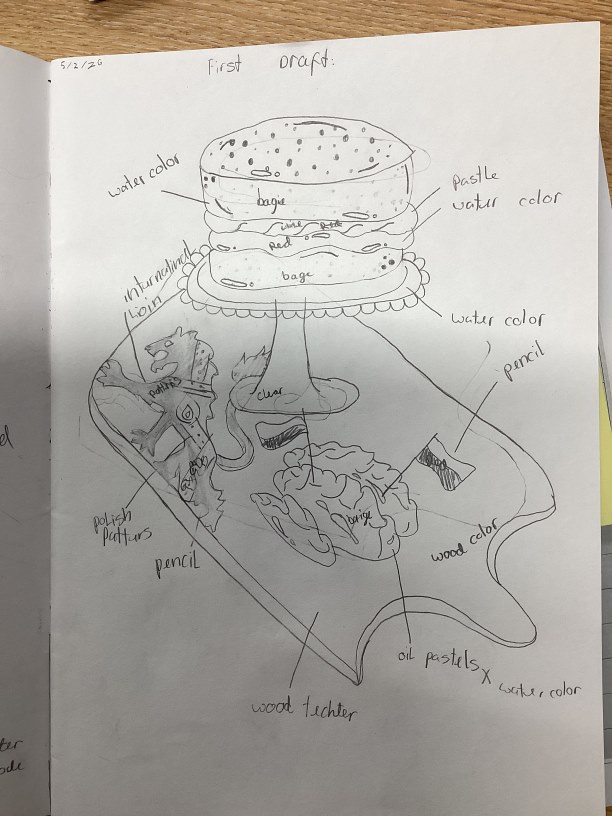 5/2/26
First Draft:
water color
pastle
water color
bague
Red
bage
internatinal
lioin
water color
pencil
clear
polish
patturs
pencil
barige
wood color
oil pastels x water color
wood techter